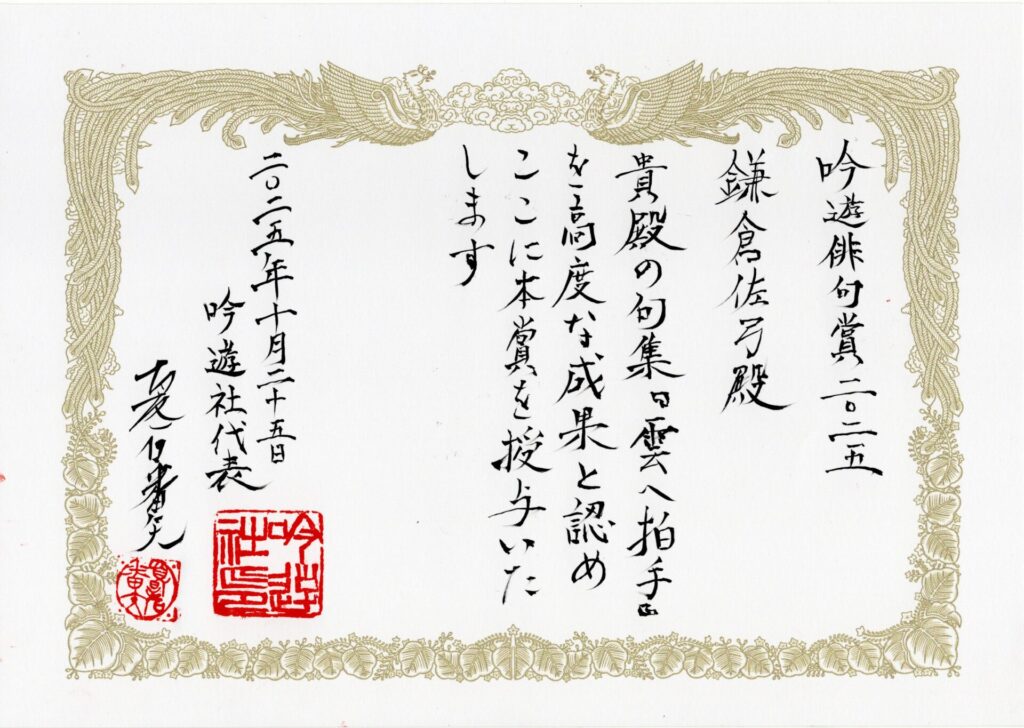 吟遊俳句賞二〇二五
鎌倉佐弓殿
貴殿の句集『雲へ拍手』
を高度な成果と認め
ここに本賞を授与いた
します
二〇二五年十月二十五日
吟遊社代表
夏石番矢
吟遊社印